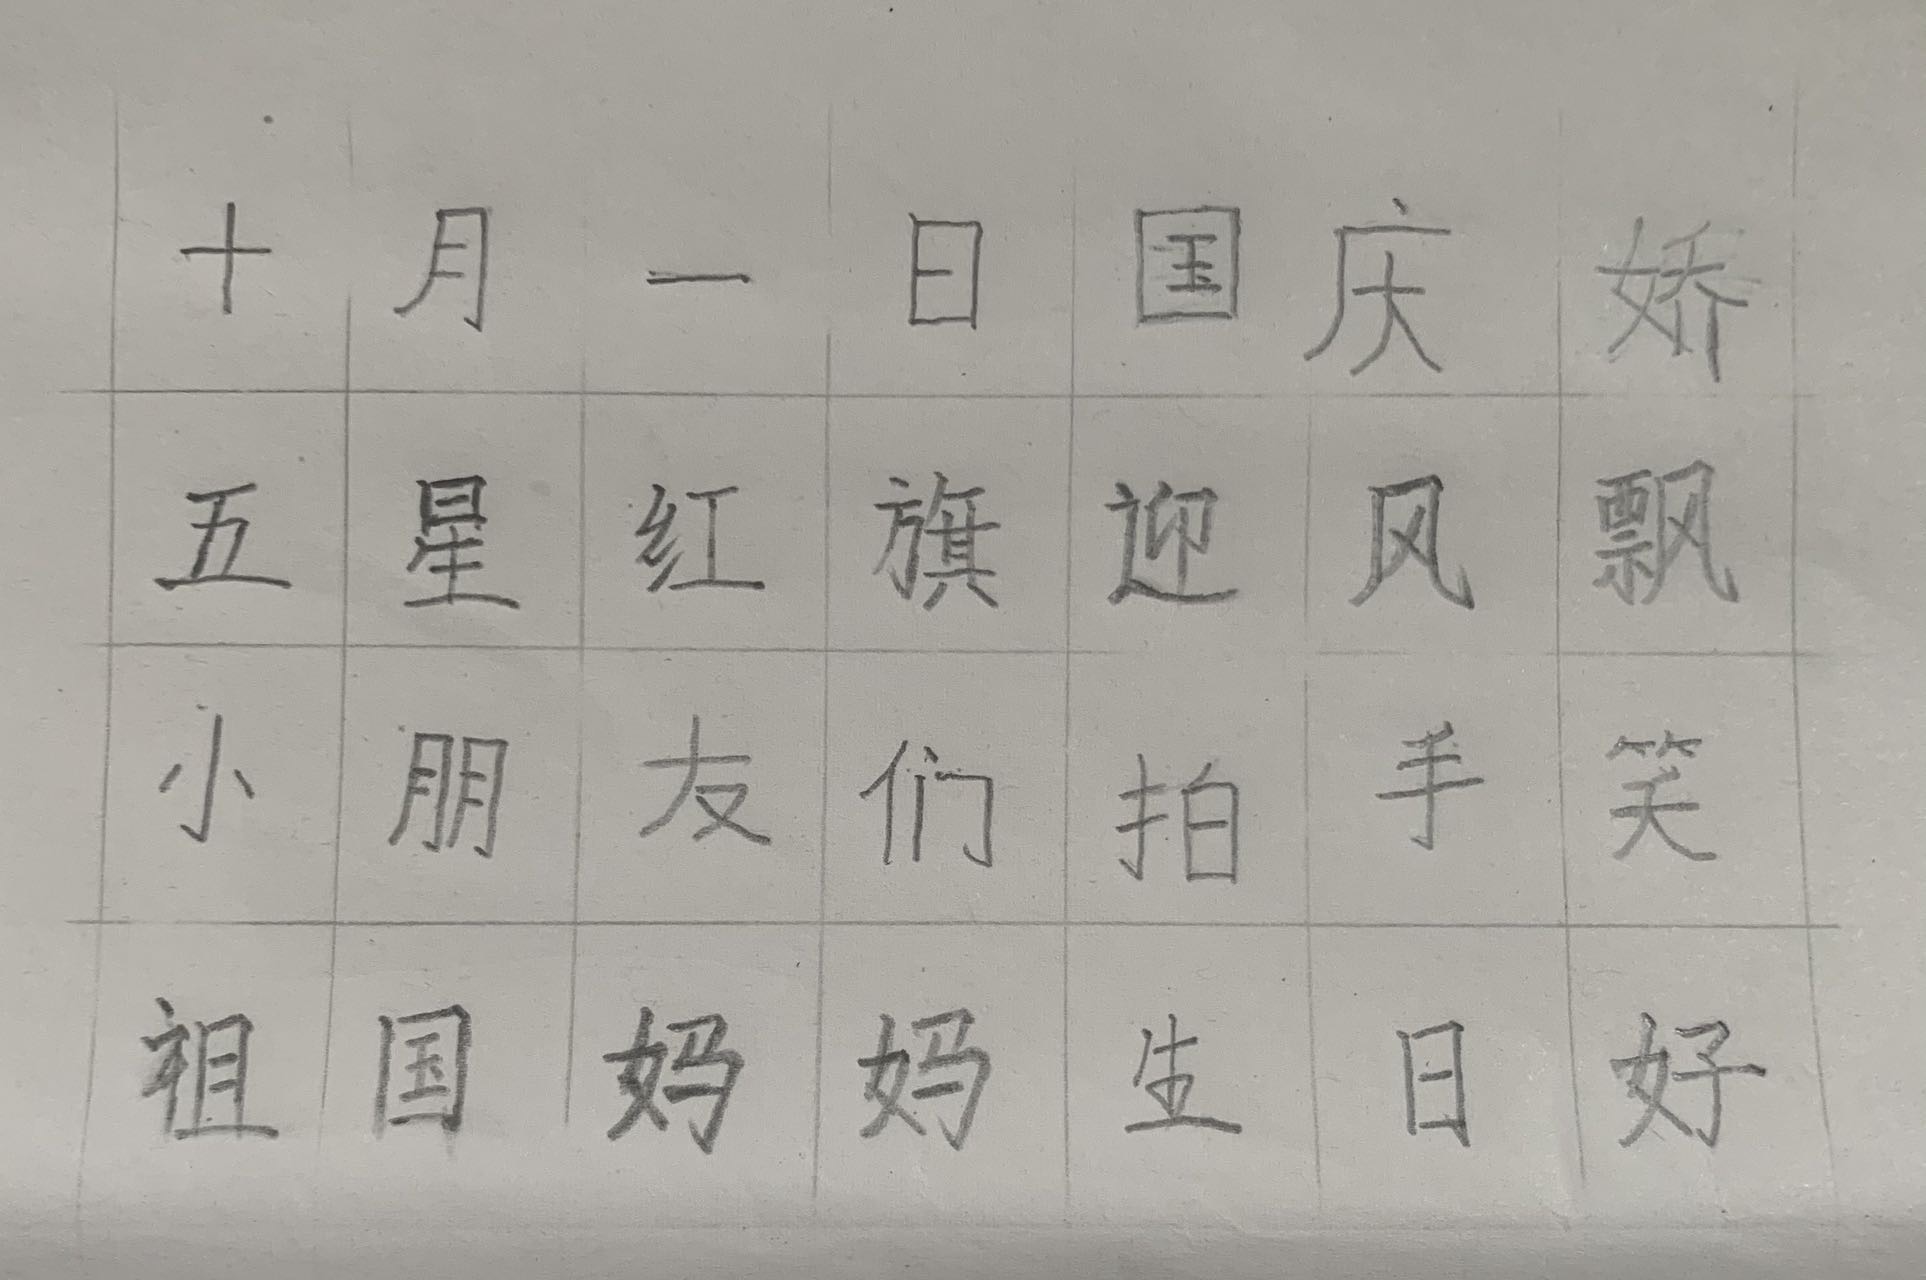 十月一日国庆娇
五星红旗迎风飘
小朋友们拍手笑
祖国妈妈生日好